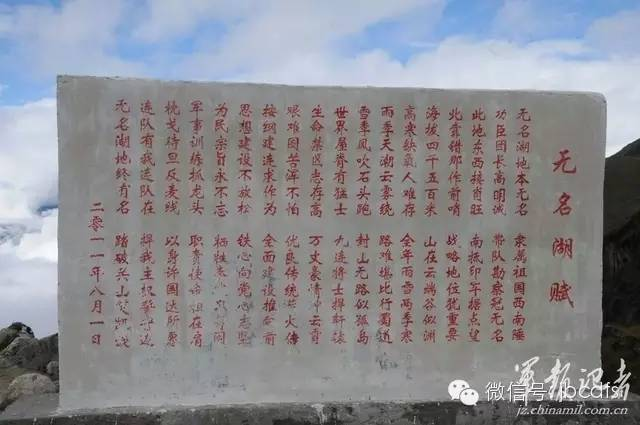 无名湖赋
无名湖地本无名 隶属祖国西南陲
功臣团长高明诚 带队勘察冠无名
此地东西接肖旺 南抵印军据点望
北靠错那作前哨 战略地位犹重要
海拔四千五百米 山在云端谷似渊
高寒缺氧人难存 全年雨雪两季寒
雨季天湖云雾绕 路难堪比行蜀道
雪季风吹石头跑 封山无路似孤岛
世界屋脊有猛士 九连将士捍轩辕
生命禁区志存高 万丈豪情
艰难困苦浑不怕 优良传统 火传
按纲建连求作为 全面建设推 前
思想建设不放松 铁心向党心志坚
为民宗旨永不忘 牺牲
军事训练抓龙头 职责使命 在肩
枕戈待旦反麦线 以身许国达所
连队有我连队在 捍我主权
无名湖地终有名 踏破关山
二零一一年八月一日
军报记者
微信号: jbcdfs
jz.chinamil.com.cn